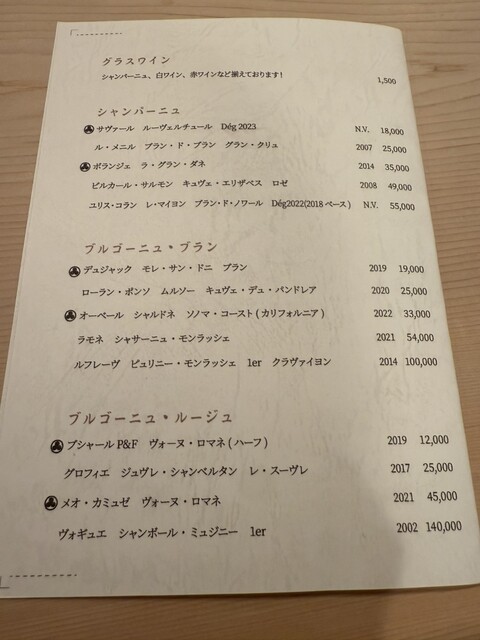 グラスワイン
シャンパーニュ、白ワイン、赤ワインなど揃えております! 1,500
シャンパーニュ
サヴァール ルーヴェルチュール Dég 2023 N.V. 18,000
ル・メニル ブラン・ド・ブラン グラン・クリュ 2007 25,000
ボランジェ ラ・グラン・ダネ 2014 35,000
ビルカール・サルモン キュヴェ・エリザベス ロゼ 2008 49,000
ユリス・コラン レ・マイヨン ブラン・ド・ノワール Dég2022(2018ベース) N.V. 55,000
ブルゴーニュ・ブラン
デュジャック モレ・サン・ドニ ブラン 2019 19,000
ローラン・ポンソ ムルソー キュヴェ・デュ・パンドレア 2020 25,000
オーベール シャルドネ ソノマ・コースト(カリフォルニア) 2022 33,000
ラモネ シャサーニュ・モンラッシェ 2021 54,000
ルフレーヴ ピュリニー・モンラッシェ 1er クラヴァイヨン 2014 100,000
ブルゴーニュ・ルージュ
ブシャールP&F ヴォーヌ・ロマネ(ハーフ) 2019 12,000
グロフィエ ジュヴレ・シャンベルタン レ・スーヴレ 2017 25,000
メオ・カミュゼ ヴォーヌ・ロマネ 2021 45,000
ヴォギュエ シャンボール・ミュジニー 1er 2002 140,000